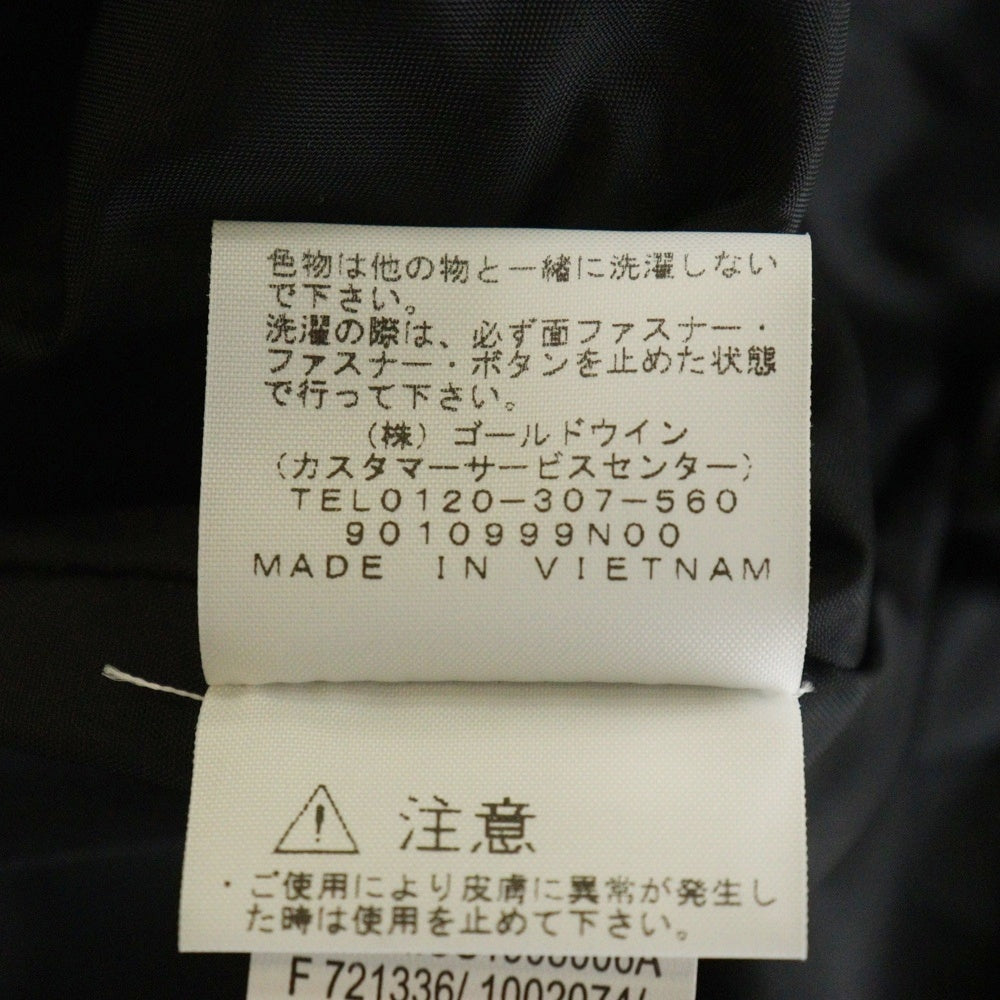 色物は他の物と一緒に洗濯しない
で下さい。
洗濯の際は、必ず面ファスナー・
ファスナー・ボタンを止めた状態
で行って下さい。
(株)ゴールドウイン
(カスタマーサービスセンター)
TEL0120-307-560
9010999N00
MADE IN VIETNAM
注意
・ご使用により皮膚に異常が発生し
た時は使用を止めて下さい。
F 721336/ 1002074/